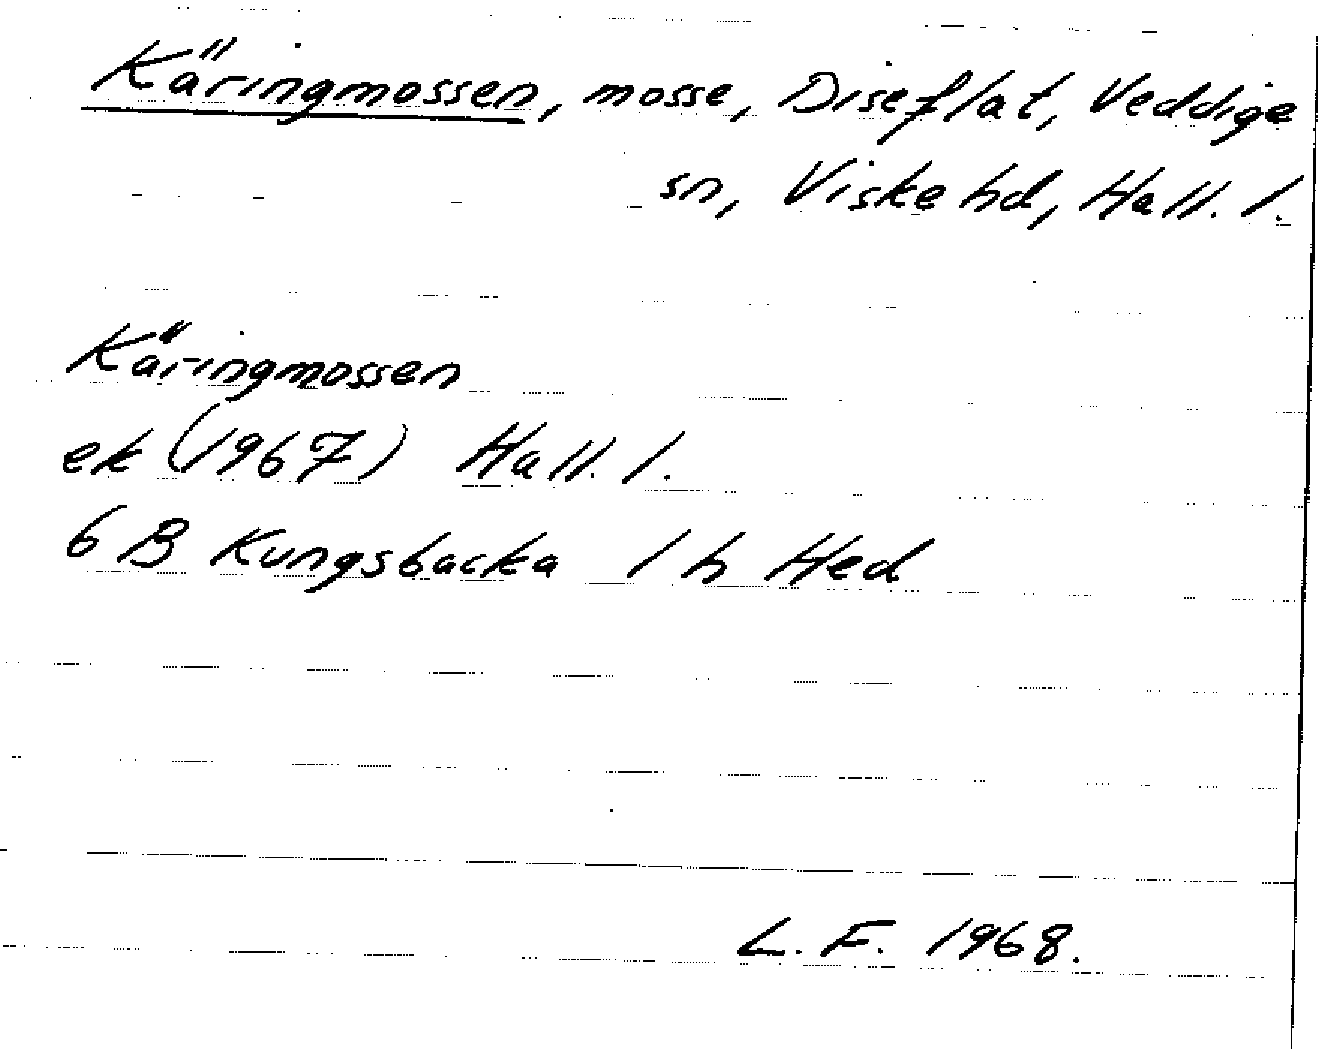 Käringmossen, mosse, Diseflat, Veddige
sn, Viske hd, Hall. l.
Käringmossen
ek (1967) Hall. l.
6 B Kungsbacka 1 h Hed
L. F. 1968.